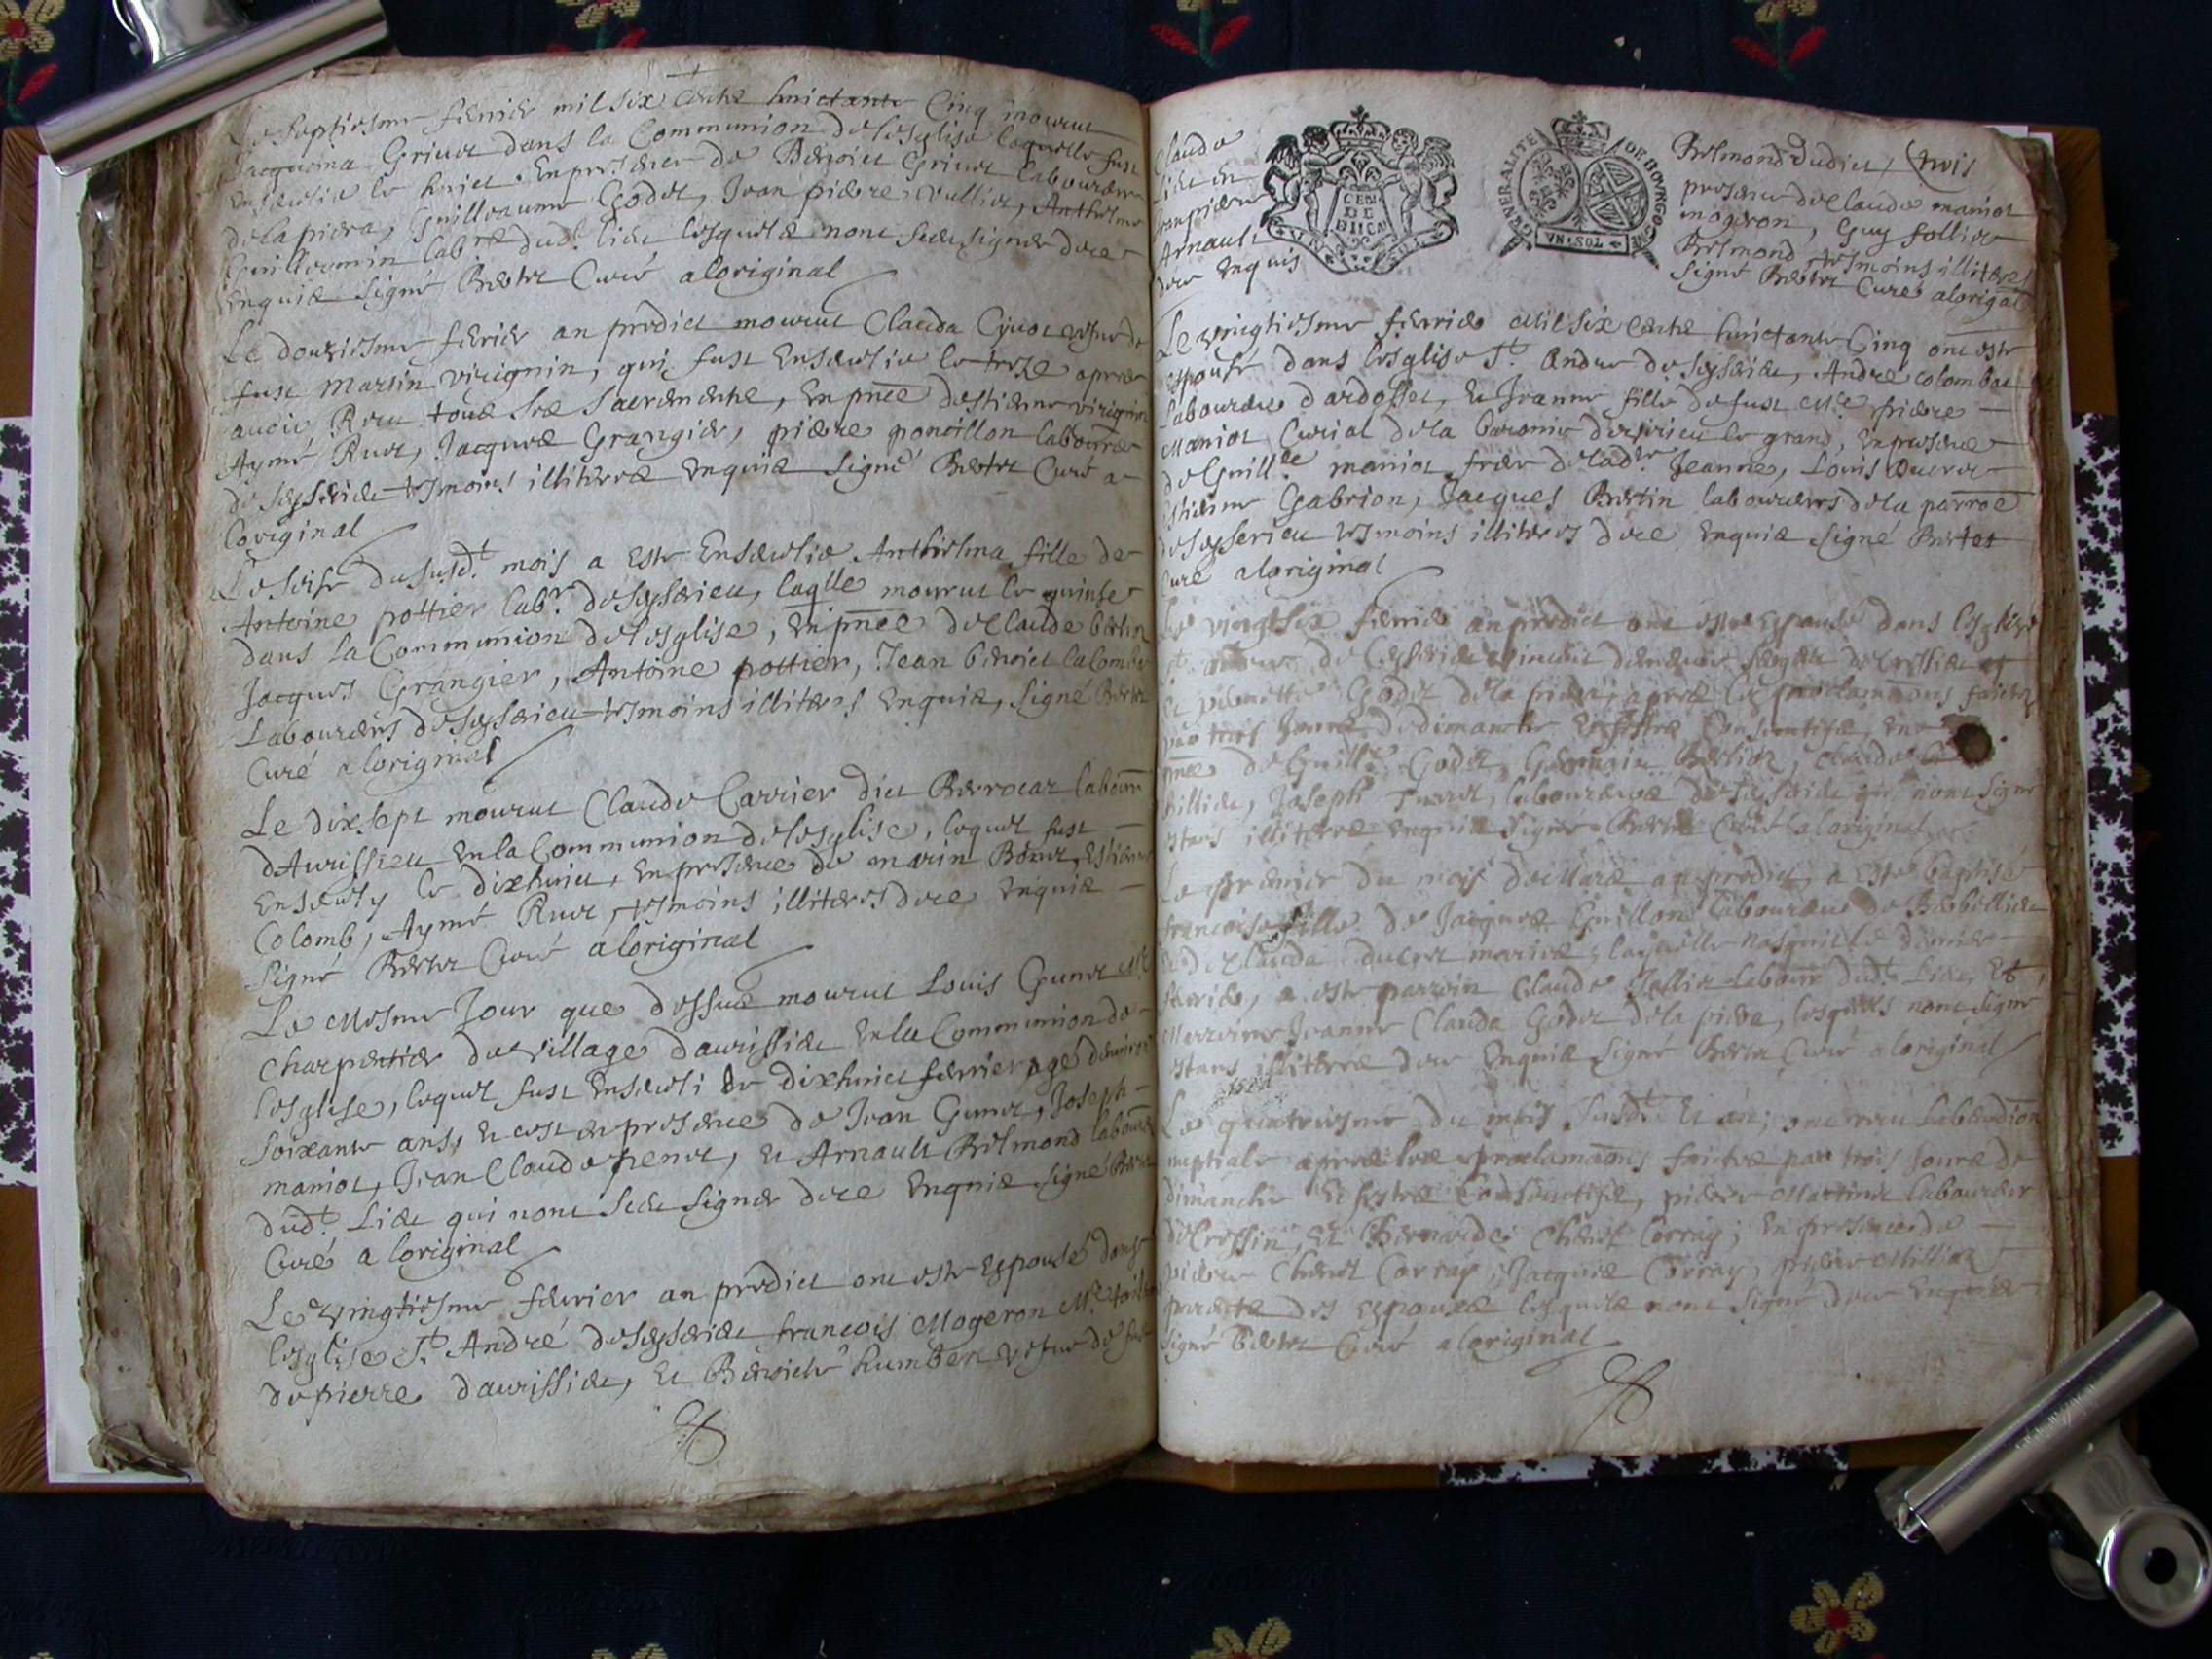 Le septiesme febvrier mil six cents huictante Cinq mourut
Jacquema Grivet dans la Communion de lesglise laquelle fust
ensevelie le huict. En presence de Benoict Grivet laboureur
de la piera, Guilleaume Godet, Jean piere Vulliet, Anthelme
Guillermin lab.re dud.t lieu lesquels nont sceu signer de ce
enquis signé Bertet Curé a loriginal
Le douziesme febvrier an predict mourut Clauda Cyvot vefve de
fust Martin virignin, qui fust Ensevelie le treze apres
avoir Receu tous ses Sacrements, En pñce destienne virignin
Aymé Ruet, Jacques Grangier, piere poncillon laboure
de seyserieu tesmoins illiteres enquis signé Bertet Curé a
loriginal
Le seise du susd.t mois a este Ensevelie Anthelma fille de
Antoine pottier lab.r de seyserieu, laqlle mourut le quinse
dans la Communion de lesglise, en pñce de Claude
Jacques Grangier, Antoine pottier, Jean benoict Colomb
Laboureurs de seyserieu tesmoins illiteres enquis, signé Bertet
Curé a loriginal
Le dixsept mourut Claude Carrier dict Berrocaz labour
dAurissieu en la Communion de lesglise, lequel fust
Ensevely le dixhuict, en presence de marin Bonet, Estienne
Colomb, Aymé Ruet, tesmoins illiteres de ce enquis
signé Bertet Curé a loriginal
Le Mesme Jour que dessus mourut Louis Gunet M.e
Charpentier du village daurissieu en la Communion de
lesglise, lequel fust Enseveli le dixhuict febvrier agé denviron
soixante ans, et cest en presence de Jean Gunet, Joseph
maniot, Jean Claude penet, et Arnault Belmond laboure
dud.t Lieu qui nont sceu signer de ce enquis signé Bertet
Curé a loriginal
Le vingtiesme febvrier an predict ont este Espousé dans
lesglise S.t André de seyserieu francois Mogeron M.e
de pierre daurissieu, et Benoicte humbert vefve de fust
Claude
lieu en
Jean piere
Arnault
de ce enquis
CEN
DE
BUCAI
VN SOL
GENERALITE DE BOVRGOGNE
VN·SOL
Belmond dudict,
presence de Claude maniot
mogeron, Guy follier
Belmond tesmoins illiteres
signé Bertet Curé a lorigal
Le vingtiesme febvrier Mil six cents huictante Cinq ont este
espousé dans lesglise S.t Andre de seyserieu, André colombat
laboureur dardosset, et Jeanne fille de fust M.e piere
Maniot Curial de la baronnie de le grand, en presence
de Guill.e maniot frere de lad.te Jeanne, Louis Ducret
estienne Gabrion, Jacques Bertin laboureurs de la parroe
de seyserieu tesmoins illiteres de ce enquis signé Bertet
Curé a loriginal
Le vingtsix febvrier an predict ont este Espousé dans lesglise
S.t Andre de Ceyserieu
et Godet de la piera; apres les proclamaons faictes
par trois Jours de dimanche et festes Consecutifs, en
pñce de Guill.e Godet, Germain Berlioz, Claude
Billiet, Joseph laboureurs de seyserieu qui nont signé
estans illiteres enquis signé Bertet Curé a loriginal
Le premier du mois de Mars an predict, a este baptisé
francoise fille de Jacques Guillon laboureur de Barbillieu
et de Clauda ducret mariés, laquelle nasquit le dernier
febvrier, a este parrein Claude Jollier labour dud.t Lieu, Et
Marreine Jeanne Clauda Godet de la piera, lesquels nont signé
estans illiteres de ce enquis signé Bertet Curé a loriginal
Le quatriesme du mois susd.t et an; ont receu la benediction
nuptiale apres les proclamaons faictes par trois Jours de
dimanche et festes Consecutifs, piere Martinet laboureur
de Cressin, Et Bernarde Corray; en presence de
piere Corray, Jacques Corray, piere Milliet
parents des Espouses lesquels nont signé de ce enquis
signé Bertet Curé a loriginal